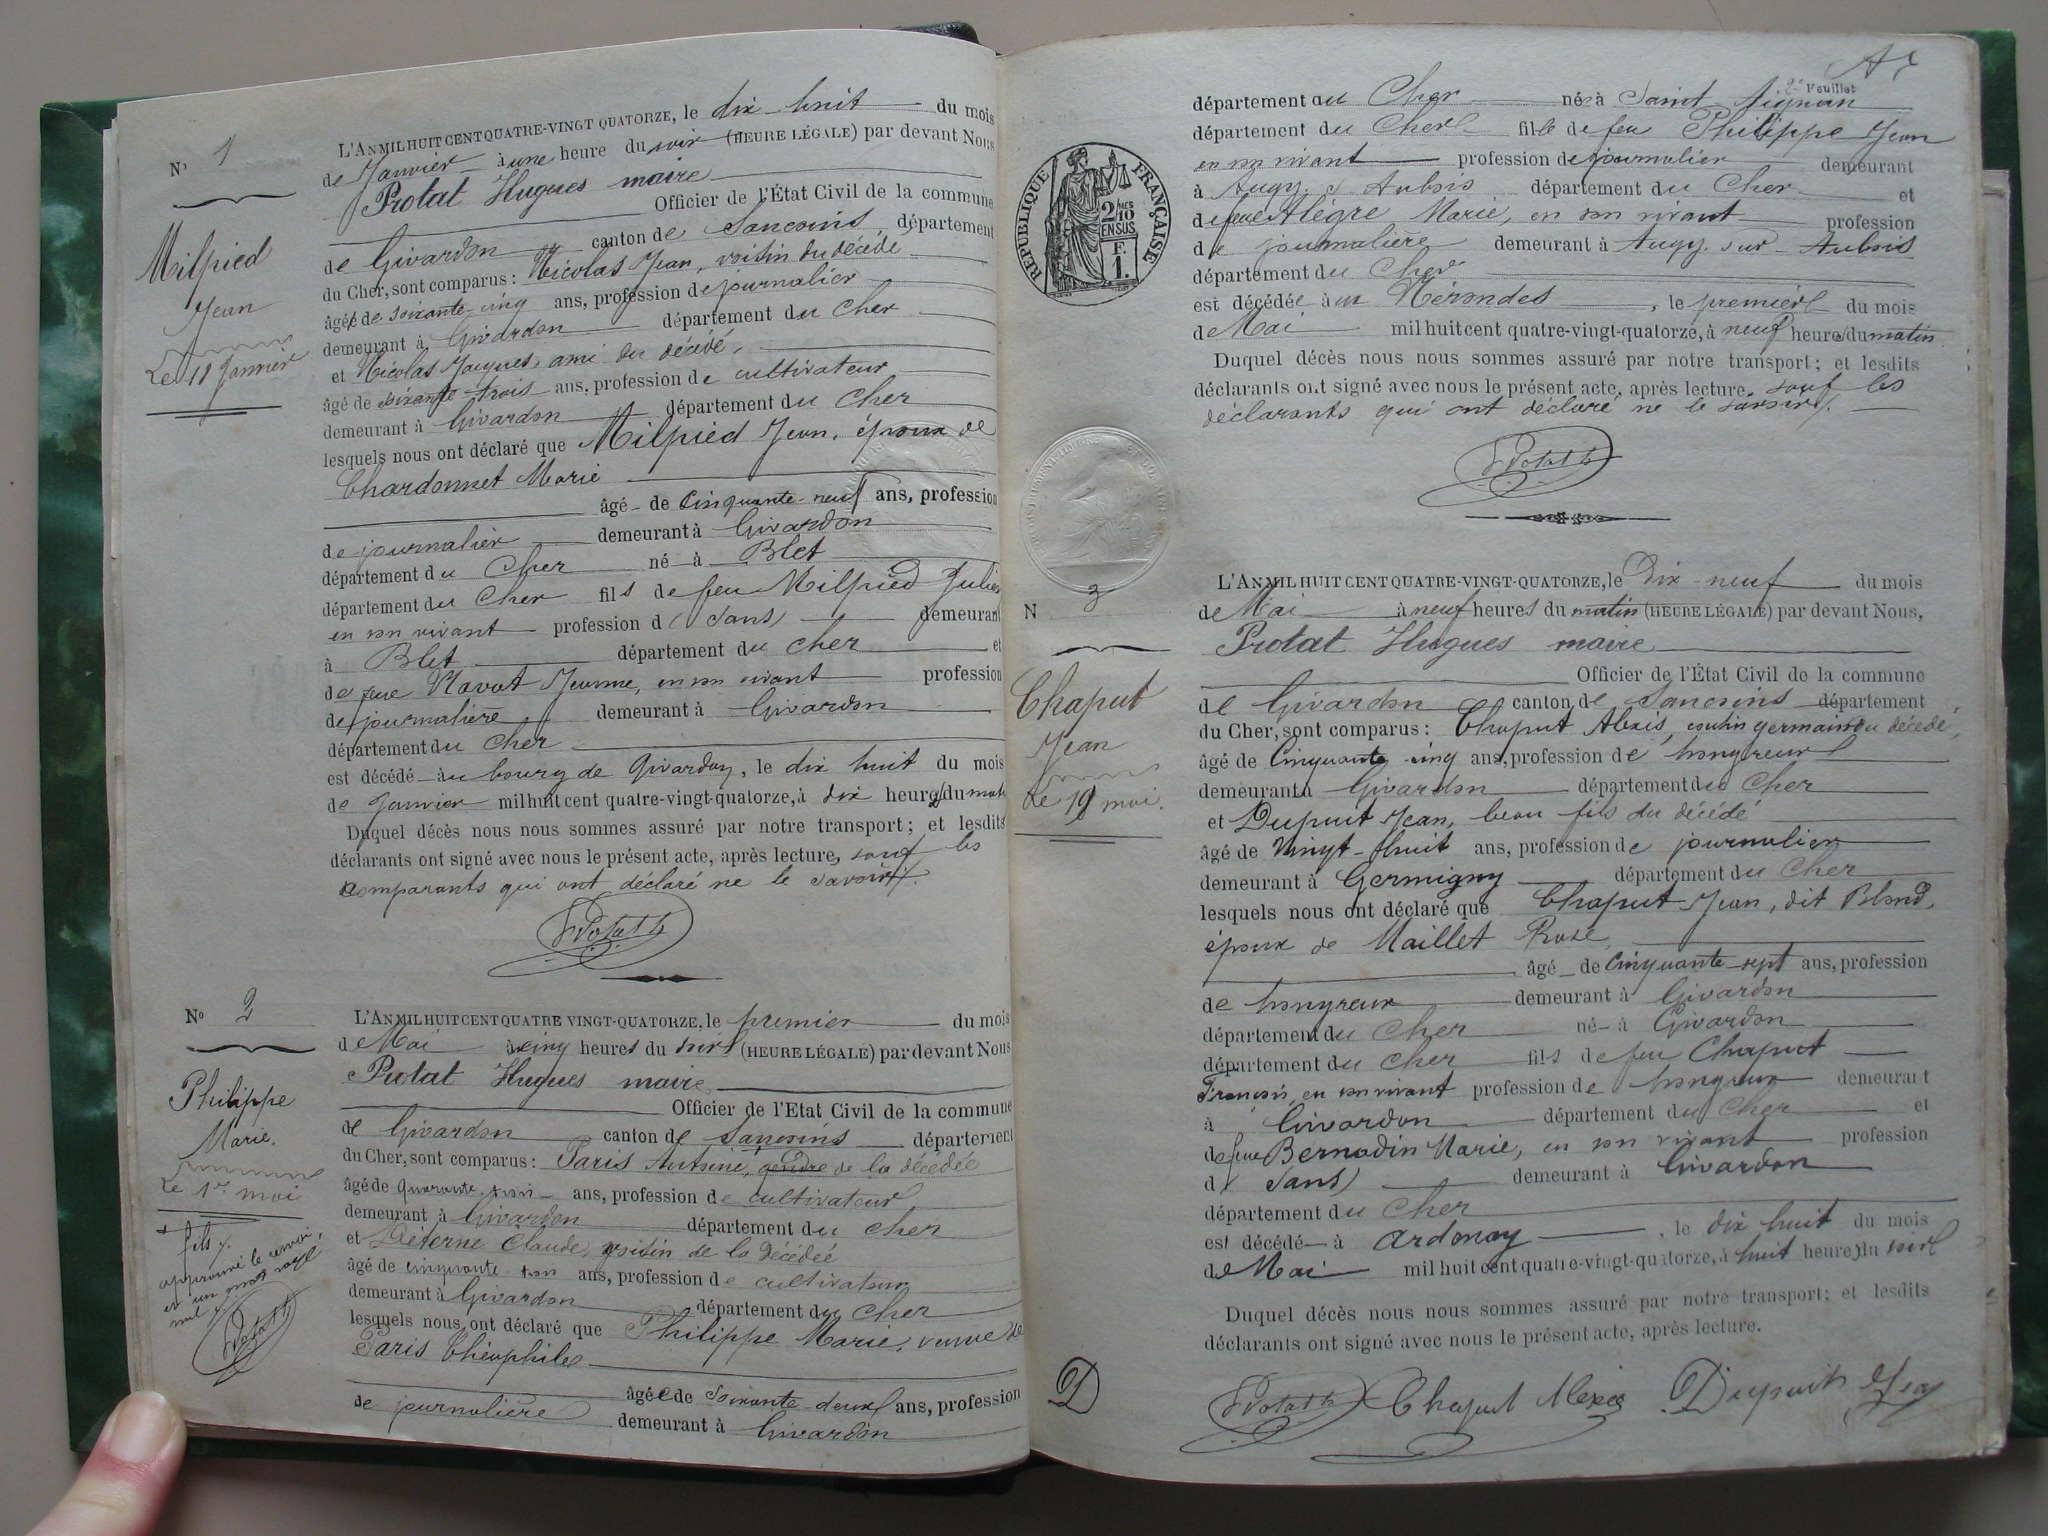 N° 1
Milpied
Jean
Le 18 Janvier
L'AN MIL HUIT CENT QUATRE-VINGT QUATORZE, le dix huit du mois
de Janvier à une heure du soir (HEURE LÉGALE) par devant Nous
Protat Hugues maire
Officier de l'État Civil de la commune
de Givardon canton de Sancoins département
du Cher, sont comparus : Nicolas Jean, voisin du décédé
âgé de soixante-cinq ans, profession de journalier
demeurant à Givardon département du Cher
et Nicolas Jacques, ami du décédé,
âgé de soixante-trois ans, profession de cultivateur
demeurant à Givardon département du Cher
lesquels nous ont déclaré que Milpied Jean, époux de
Chardonnet Marie
âgé de Cinquante-neuf ans, profession
de journalier demeurant à Givardon
département du Cher né à Blet
département du Cher fils de feu Milpied Julien
en son vivant profession d (sans) demeurant
à Blet département du Cher et
de feue Navat Jeanne, en son vivant profession
de journalière demeurant à Givardon
département du Cher
est décédé au bourg de Givardon, le dix huit du mois
de Janvier mil huit cent quatre-vingt-quatorze, à dix heures du matin
Duquel décès nous nous sommes assuré par notre transport ; et lesdits
déclarants ont signé avec nous le présent acte, après lecture, sauf les
comparants qui ont déclaré ne le savoir.
Protat h
N° 2
Philippe
Marie.
Le 1er mai
+ fils
approuvé le renvoi,
et un mot rayé
nul
Protat h
L'AN MIL HUIT CENT QUATRE VINGT-QUATORZE, le premier du mois
de Mai à cinq heures du soir (HEURE LÉGALE) par devant Nous
Protat Hugues maire
Officier de l'Etat Civil de la commune
de Givardon canton de Sancoins département
du Cher, sont comparus : Paris Antoine, gendre de la décédée
âgé de quarante-trois ans, profession de cultivateur
demeurant à Givardon département du Cher
et Déterne Claude, voisin de la décédée
âgé de cinquante-trois ans, profession de cultivateur
demeurant à Givardon département du Cher
lesquels nous ont déclaré que Philippe Marie, veuve de
Paris Théophile
âgée de soixante-deux ans, profession
de journalière demeurant à Givardon
2e Feuillet
département du Cher née à Saint-Aignan
département du Cher fille de feu Philippe Jean
en son vivant profession de journalier demeurant
à Augy s/ Aubois département du Cher et
de feue Alègre Marie, en son vivant profession
de journalière demeurant à Augy-sur-Aubois
département du Cher
est décédée aux Hérondes, le premier du mois
de Mai mil huit cent quatre-vingt-quatorze, à neuf heures du matin.
Duquel décès nous nous sommes assuré par notre transport ; et lesdits
déclarants ont signé avec nous le présent acte, après lecture, sauf les
déclarants qui ont déclaré ne le savoir.
Protat h
RÉPUBLIQUE FRANÇAISE
2/10 EN SUS
F. 1.
N 3
Chaput
Jean
Le 19 mai.
L'AN MIL HUIT CENT QUATRE-VINGT-QUATORZE, le Dix-neuf du mois
de Mai à neuf heures du matin (HEURE LÉGALE) par devant Nous,
Protat Hugues maire
Officier de l'État Civil de la commune
de Givardon canton de Sancoins département
du Cher, sont comparus : Chaput Alexis, cousin germain du décédé,
âgé de Cinquante-cinq ans, profession de hongreur
demeurant à Givardon département du Cher
et Dupuit Jean, beau fils du décédé
âgé de Vingt-huit ans, profession de journalier
demeurant à Germigny département du Cher
lesquels nous ont déclaré que Chaput Jean, dit Blond,
époux de Maillet Rose
âgé de Cinquante-sept ans, profession
de hongreur demeurant à Givardon
département du Cher né à Givardon
département du Cher fils de feu Chaput
François, en son vivant profession de hongreur demeurant
à Givardon département du Cher et
de feue Bernadin Marie, en son vivant profession
d (sans) demeurant à Givardon
département du Cher
est décédé à Ardenay, le dix huit du mois
de Mai mil huit cent quatre-vingt-quatorze, à huit heures du soir
Duquel décès nous nous sommes assuré par notre transport ; et lesdits
déclarants ont signé avec nous le présent acte, après lecture.
D
Protat h Chaput Alexis Dupuit Jean